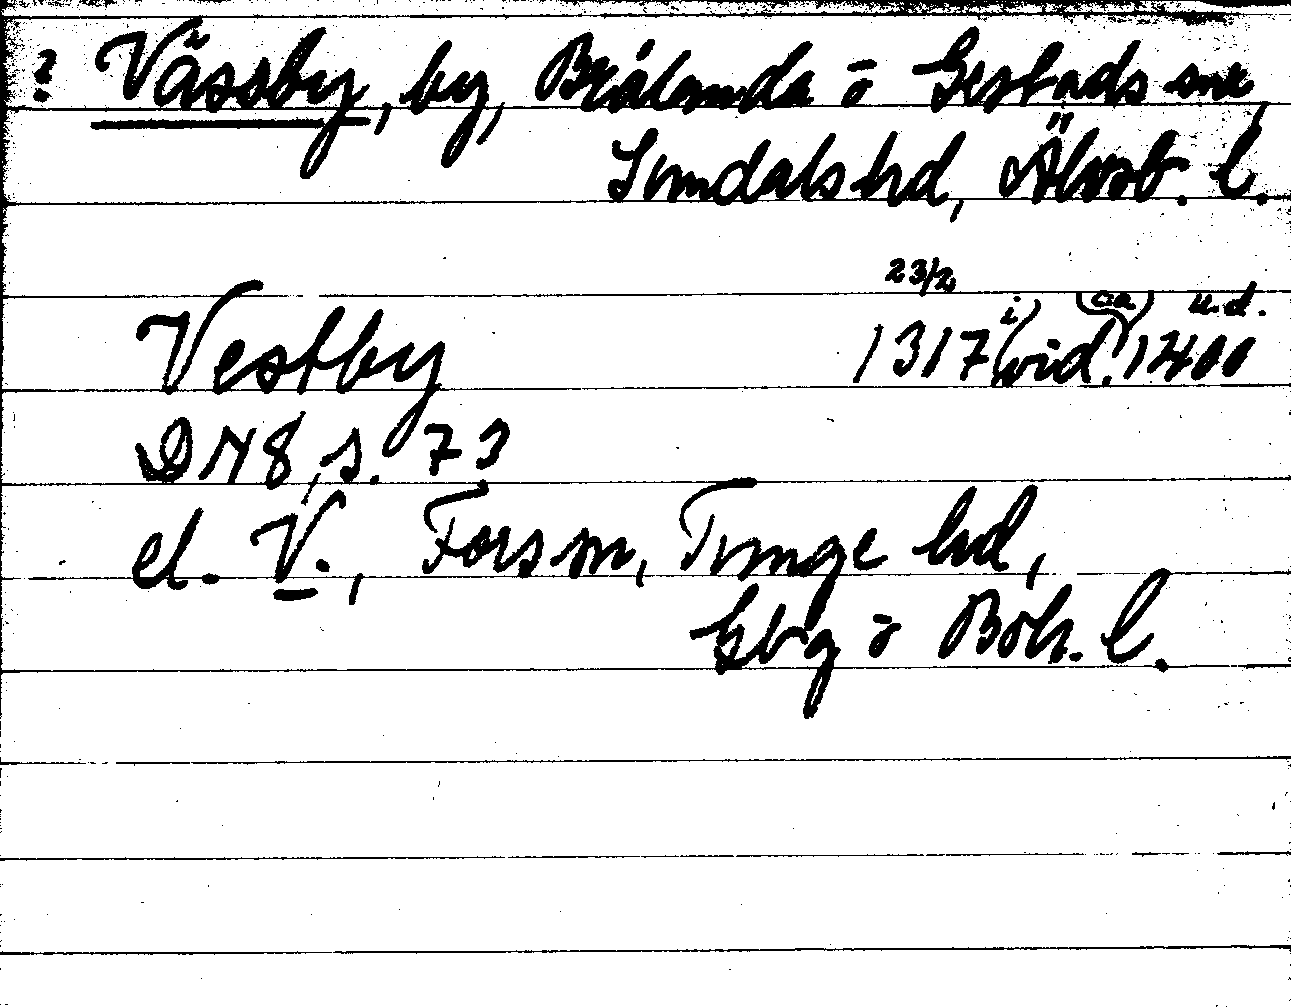 ? Vässby, by, Brålanda o Gestads snr,
Sundals hd, Älvsb. l.
Vestby 23/2 1317 (i vid. (ca) 1400 u.d.
DN 8, s. 73
el. V., Fors sn, Tunge hd,
Gbg o Boh. l.